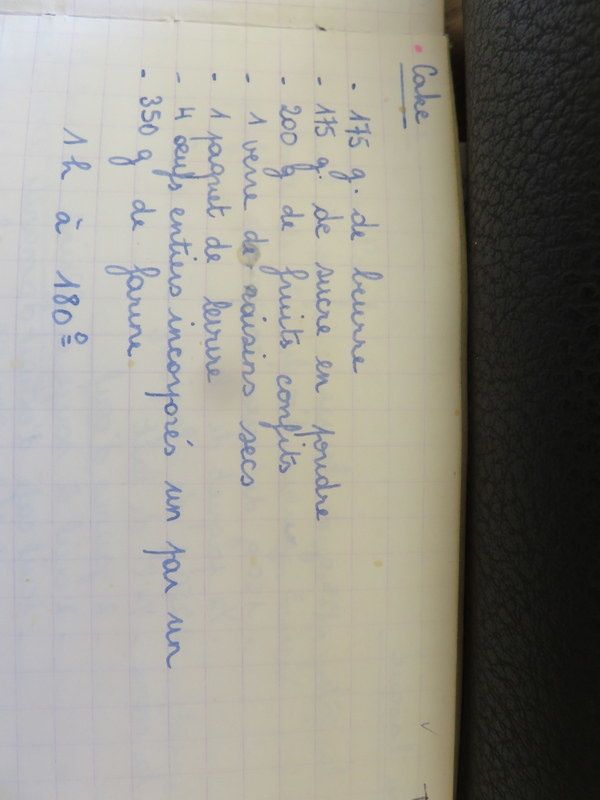 • Cake
- 175 g. de beurre
- 175 g. de sucre en poudre
- 200 g de fruits confits
- 1 verre de raisins secs
- 1 paquet de levure
- 4 œufs entiers incorporés un par un
- 350 g de farine
1h à 180°